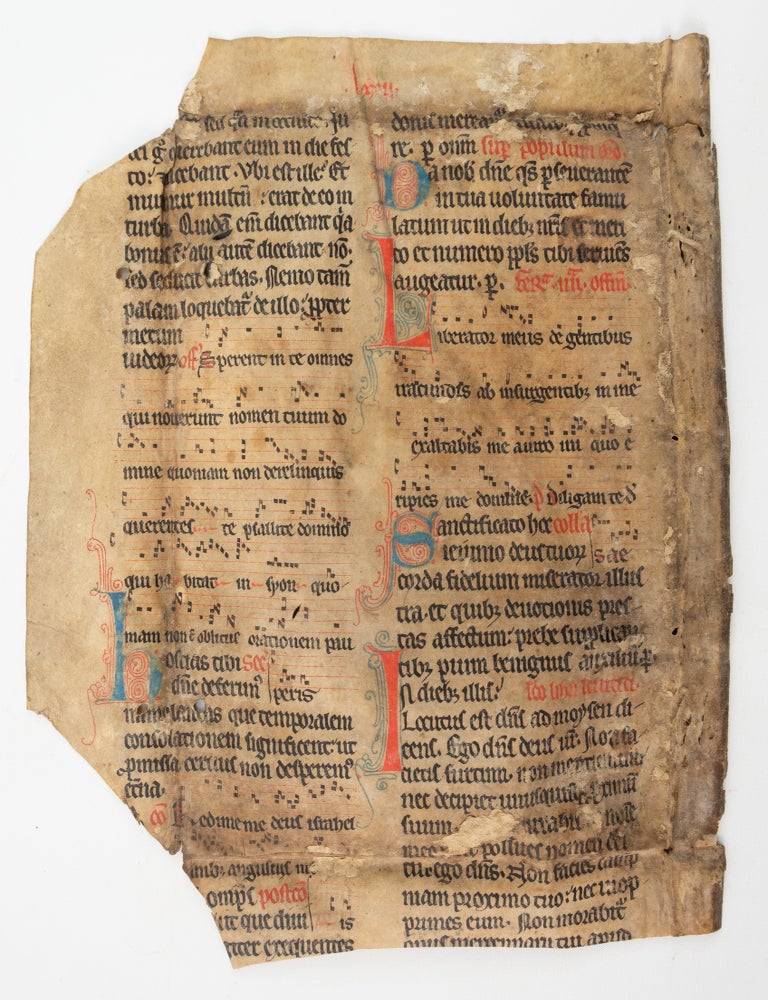 lxvii
ei gͦ querebant eum in die fes
to: ⁊ dicebant. Vbi est ille? Et
murmur multum erat de eo in
turba. Quidā em̄ dicebant qͥa
bonus ē: alii autē dicebant nō.
sed seducit turbas. Nemo tam̄
palam loquebat᷑ de illo: ꝓpter
metum
iudeoꝝ off̄ Sperent in te omnes
qui noverunt nomen tuum do
mine quoniam non derelinquis
querentes te psallite domino
qui habitat in syon quo
niam non ē oblitus orationem pau
perū
hostias tibi sec̄
dn̄e deferim᷒
immolandas que temporalem
consolationem significent: ut
ꝓmissa certius non desperem᷒
et̄na.
co Redime me deus israhel
angustiis
postcō
que diui
exequentes
re. p̄ oīm sup̄ populum
Da nob̄ dn̄e qs̄ ꝑseverantē
in tua voluntate famu
latum ut in dieb; nr̄is et meri
to et numero ppl̄s tibi serviēs
augeatur. p̄. offm̄.
Liberator meus de gentibus
iracundis ab insurgentib; in me
exaltabis me a viro iniquo e
ripies me domine. p̄ Diligam te d
Sanctificato hoc collā
ieiunio deus tuoꝝ sae
corda fidelium miserator illus
tra. et quib; devotionis pres
tas affectum: prebe supplican
tib; pium benignus auxiliū. p̄.
In dieb; illis: lcō libri levitici.
Locutus est dn̄s ad moysen di
cens. Ego dn̄s deus vr̄. Non fa
cietis furtum. non mentiemini
nec decipiet unusquisq;
suum.
nec pollues nomen dei
tui. ego dn̄s. Non facies calūp
niam proximo tuo: nec vi opp
primes eum. Non morabit᷑
opus mercennarii tui apud